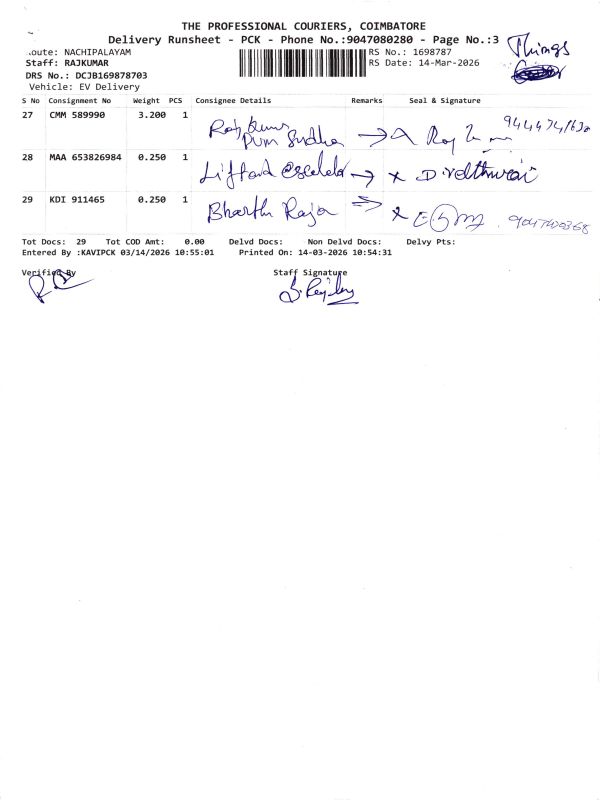 THE PROFESSIONAL COURIERS, COIMBATORE
Delivery Runsheet - PCK - Phone No.:9047080280 - Page No.:3
Things
oute: NACHIPALAYAM
RS No.: 1698787
Staff: RAJKUMAR
RS Date: 14-Mar-2026
DRS No.: DCJB169878703
Vehicle: EV Delivery
S No Consignment No Weight PCS Consignee Details Remarks Seal & Signature
27 CMM 589990 3.200 1 Raj Kumar
28 MAA 653826984 0.250 1
29 KDI 911465 0.250 1 Bharthi Raja
Tot Docs: 29 Tot COD Amt: 0.00 Delvd Docs: Non Delvd Docs: Delvy Pts:
Entered By :KAVIPCK 03/14/2026 10:55:01 Printed On: 14-03-2026 10:54:31
Verified By Staff Signature